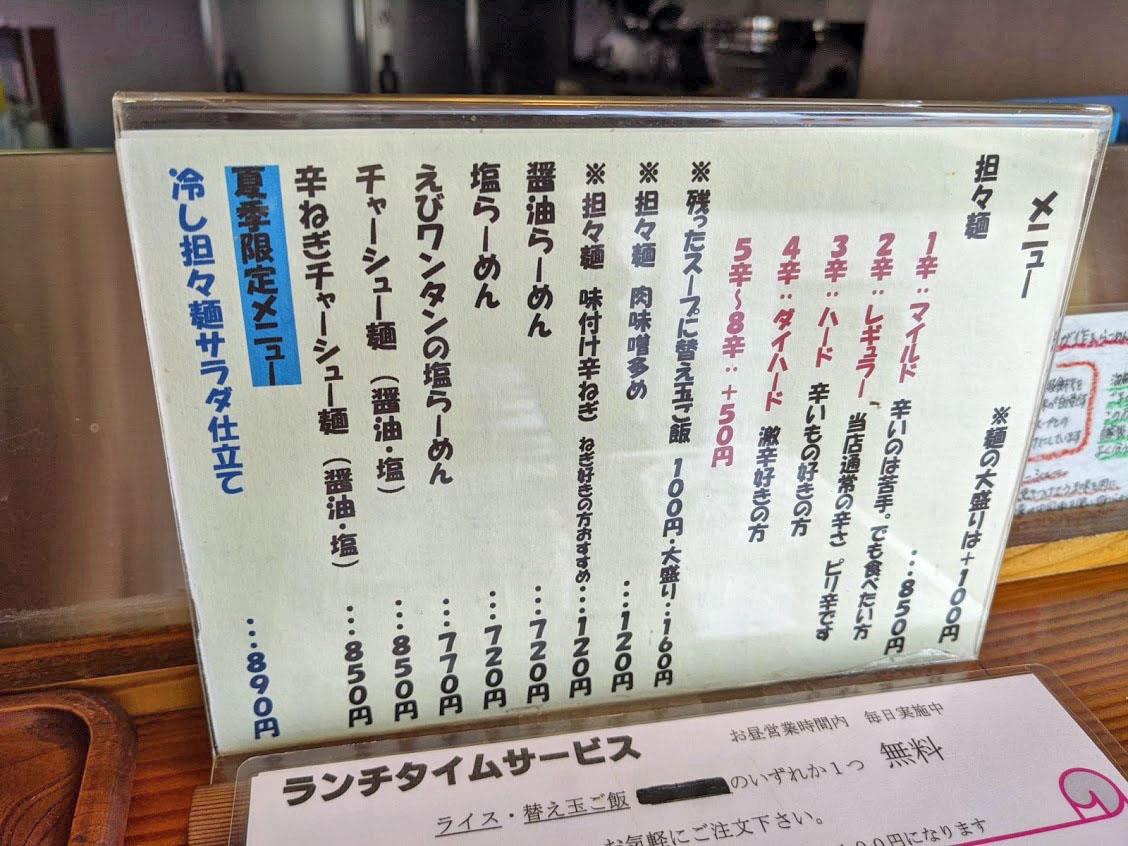 メニュー
※麺の大盛りは+100円
担々麺 …850円
1辛:マイルド 辛いのは苦手。でも食べたい方
2辛:レギュラー 当店通常の辛さ ピリ辛です
3辛:ハード 辛いもの好きの方
4辛:ダイハード 激辛好きの方
5辛〜8辛:+50円
※残ったスープに替え玉ご飯 100円・大盛り…160円
※担々麺 肉味噌多め …120円
※担々麺 味付け辛ねぎ ねぎ好きの方おすすめ…120円
醤油らーめん …720円
塩らーめん …720円
えびワンタンの塩らーめん …770円
チャーシュー麺(醤油・塩) …850円
辛ねぎチャーシュー麺(醤油・塩) …850円
夏季限定メニュー
冷し担々麺サラダ仕立て …890円
ランチタイムサービス お昼営業時間内 毎日実施中
ライス・替え玉ご飯 のいずれか1つ 無料
お気軽にご注文下さい。
00円になります